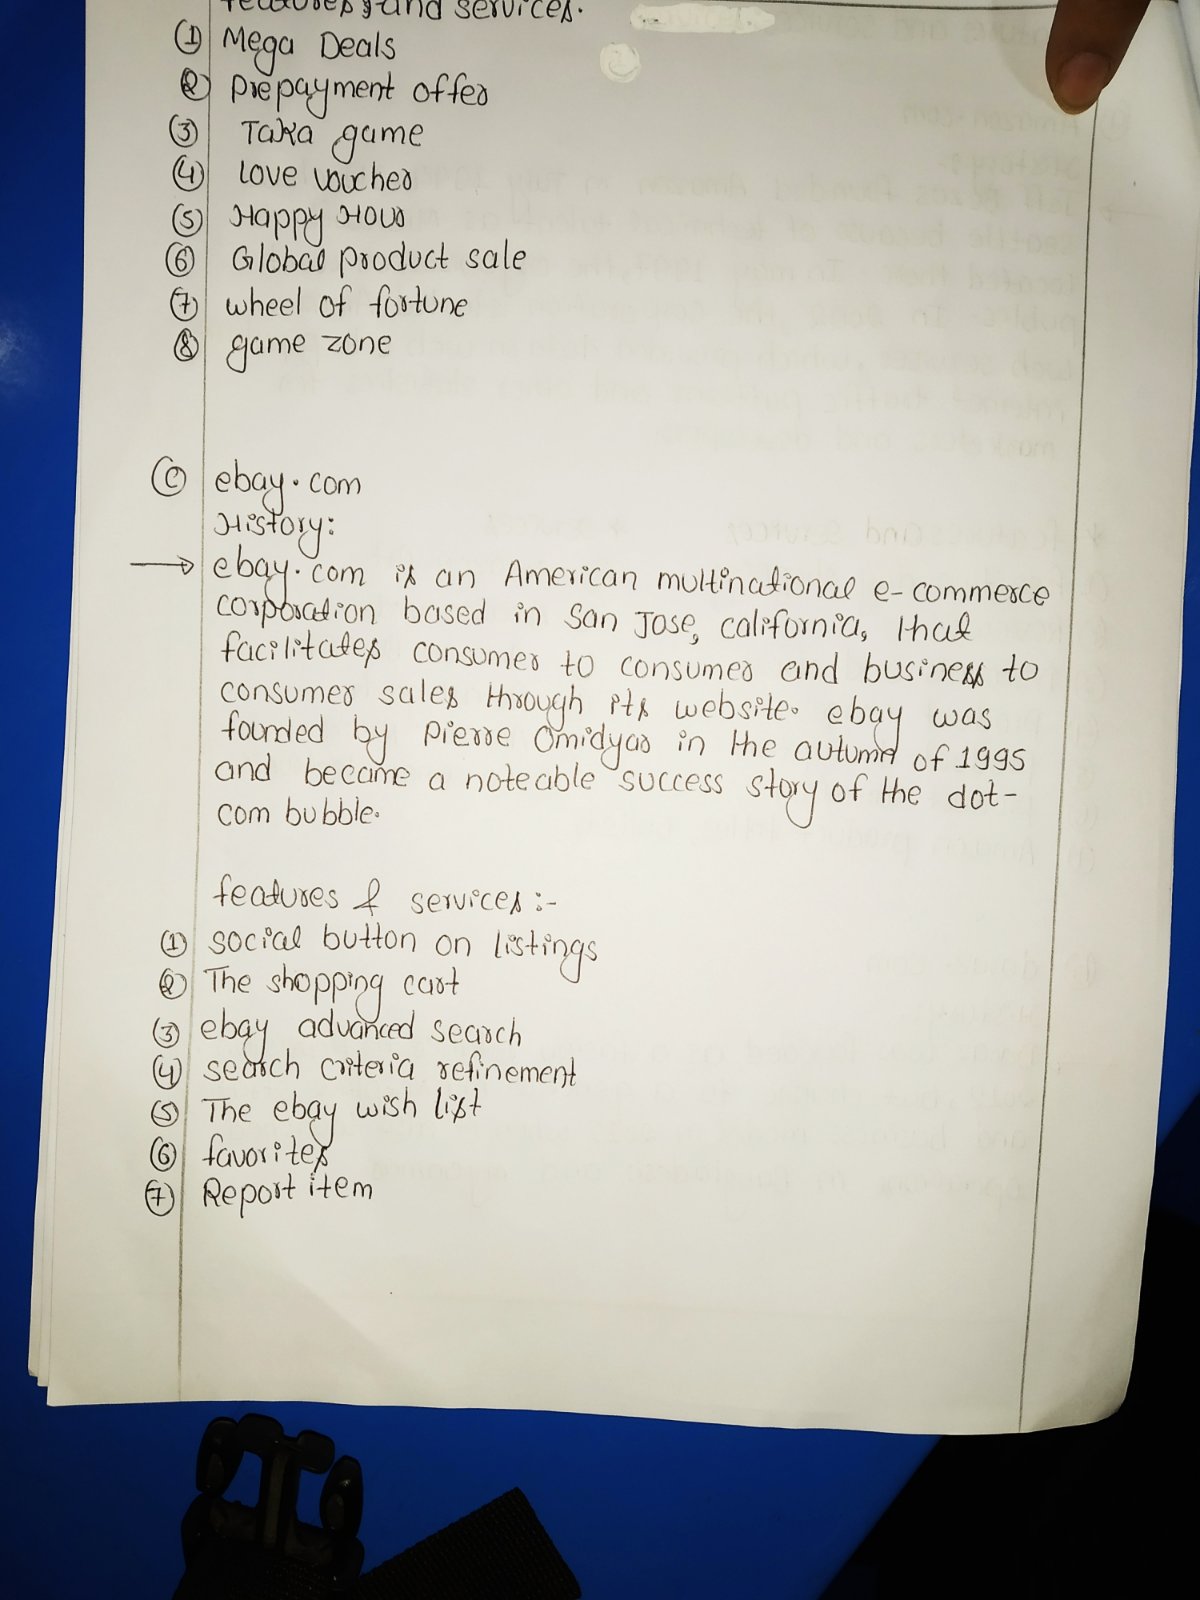 features and services.
① Mega Deals
② Prepayment offer
③ Taka game
④ Love voucher
⑤ Happy Hour
⑥ Global product sale
⑦ wheel of fortune
⑧ game zone
Ⓒ ebay.com
History:
→ ebay.com is an American multinational e-commerce
corporation based in San Jose, california, that
facilitates consumer to consumer and business to
consumer sales through its website. ebay was
founded by Pierre Omidyar in the autumn of 1995
and became a noteable success story of the dot-
com bubble.
features & services :-
① social button on listings
② The shopping cart
③ ebay advanced search
④ search criteria refinement
⑤ The ebay wish list
⑥ favorites
⑦ Report item